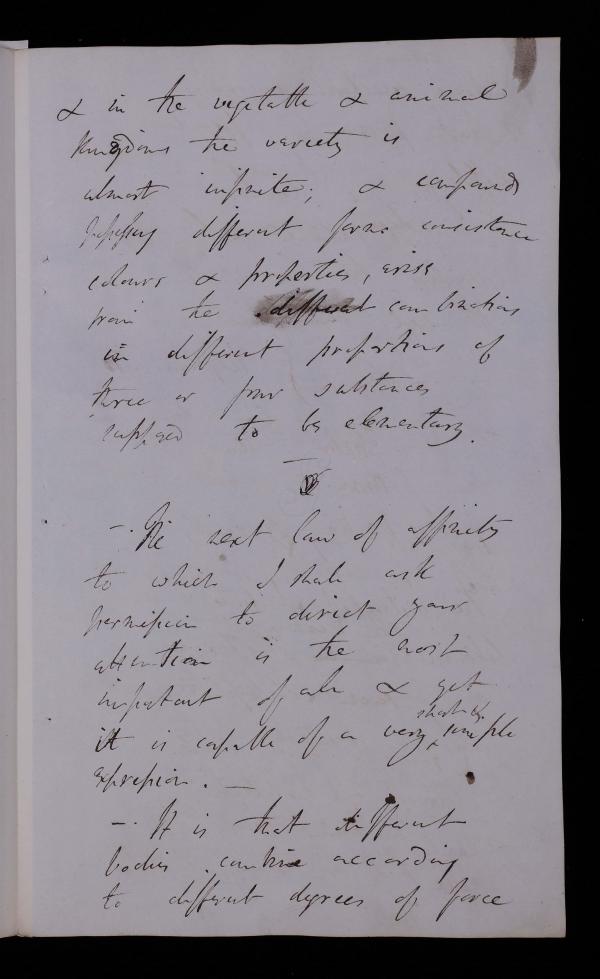 & in the vegetable & animal
kingdoms the variety is
almost infinite; & compounds
possessing different forms consistence
colours & properties, arise
from the different combinations
in different proportions of
three or four substances
supposed to be elementary.
- The next law of affinity
to which I shall ask
permission to direct your
attention is the most
important of all & yet
short &
it is capable of a very simple
expression. —
- It is that different
bodies combine according
to different degrees of force